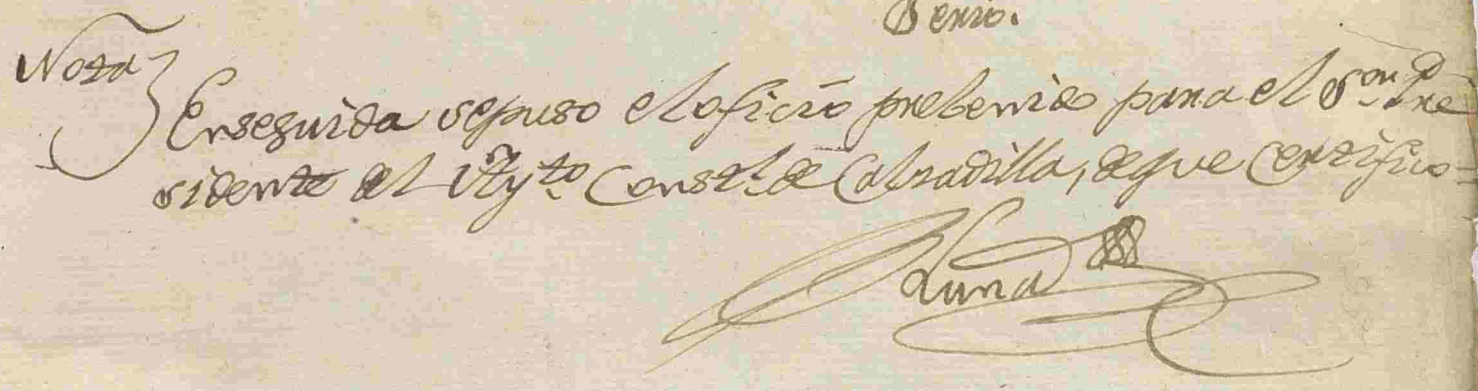 Nota
Enseguida se puso el oficio prebenido para el S.or Pre
sidente del Ay.to Const.l de Calzadilla, de que certifico=
Luna